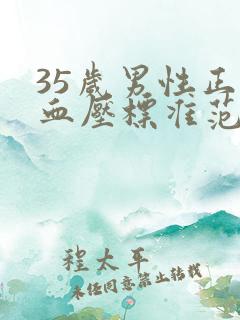 35岁男性正
血壓標准范
程太平
未经同意禁止转载